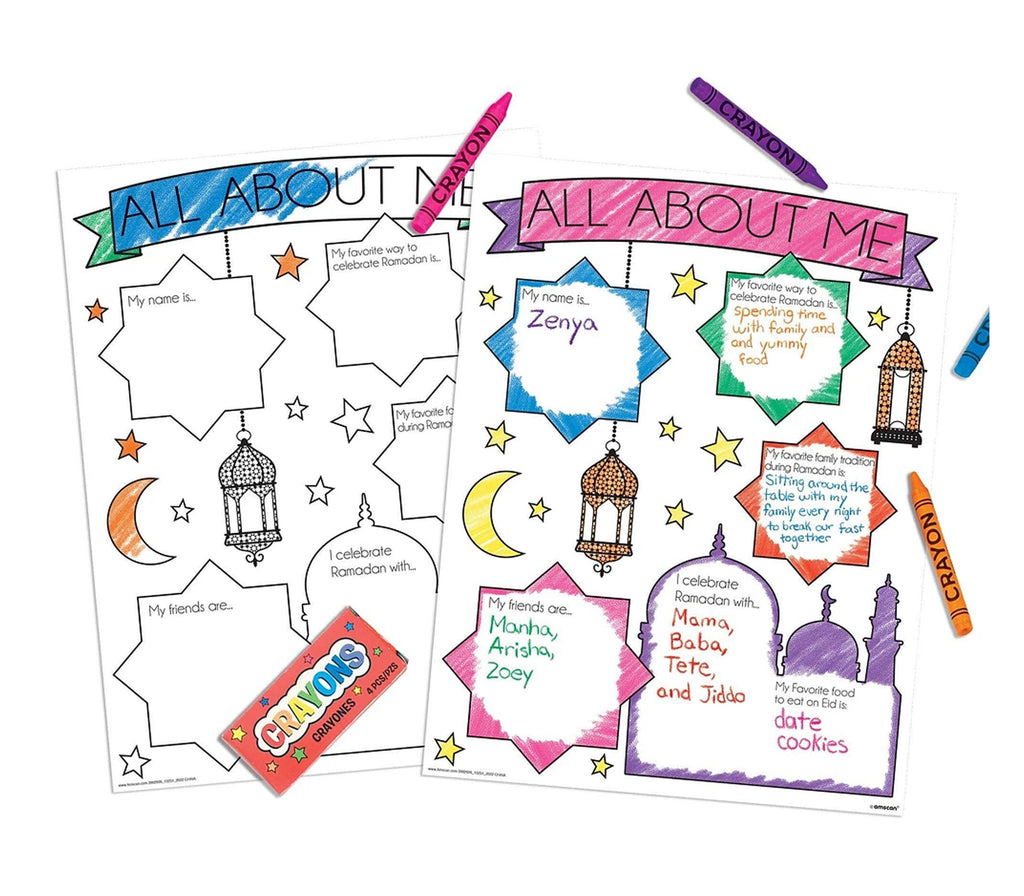 ALL ABOUT ME
My name is...
My favorite way to
celebrate Ramadan is...
My favorite
during
I celebrate
Ramadan with...
My friends are...
CRAYONS
CRAYONES 4 PCS/PZS
CRAYON
CRAYON
ALL ABOUT ME
My name is...
Zenya
My favorite way to
celebrate Ramadan is...
spending time
with family and
and yummy
food
My favorite family tradition
during Ramadan is:
Sitting around the
table with my
family every night
to break our fast
together
CRAYON
My friends are...
Manha,
Arisha,
Zoey
I celebrate
Ramadan with...
Mama,
Baba,
Tete,
and Jiddo
My Favorite food
to eat on Eid is:
date
cookies
©amscan®